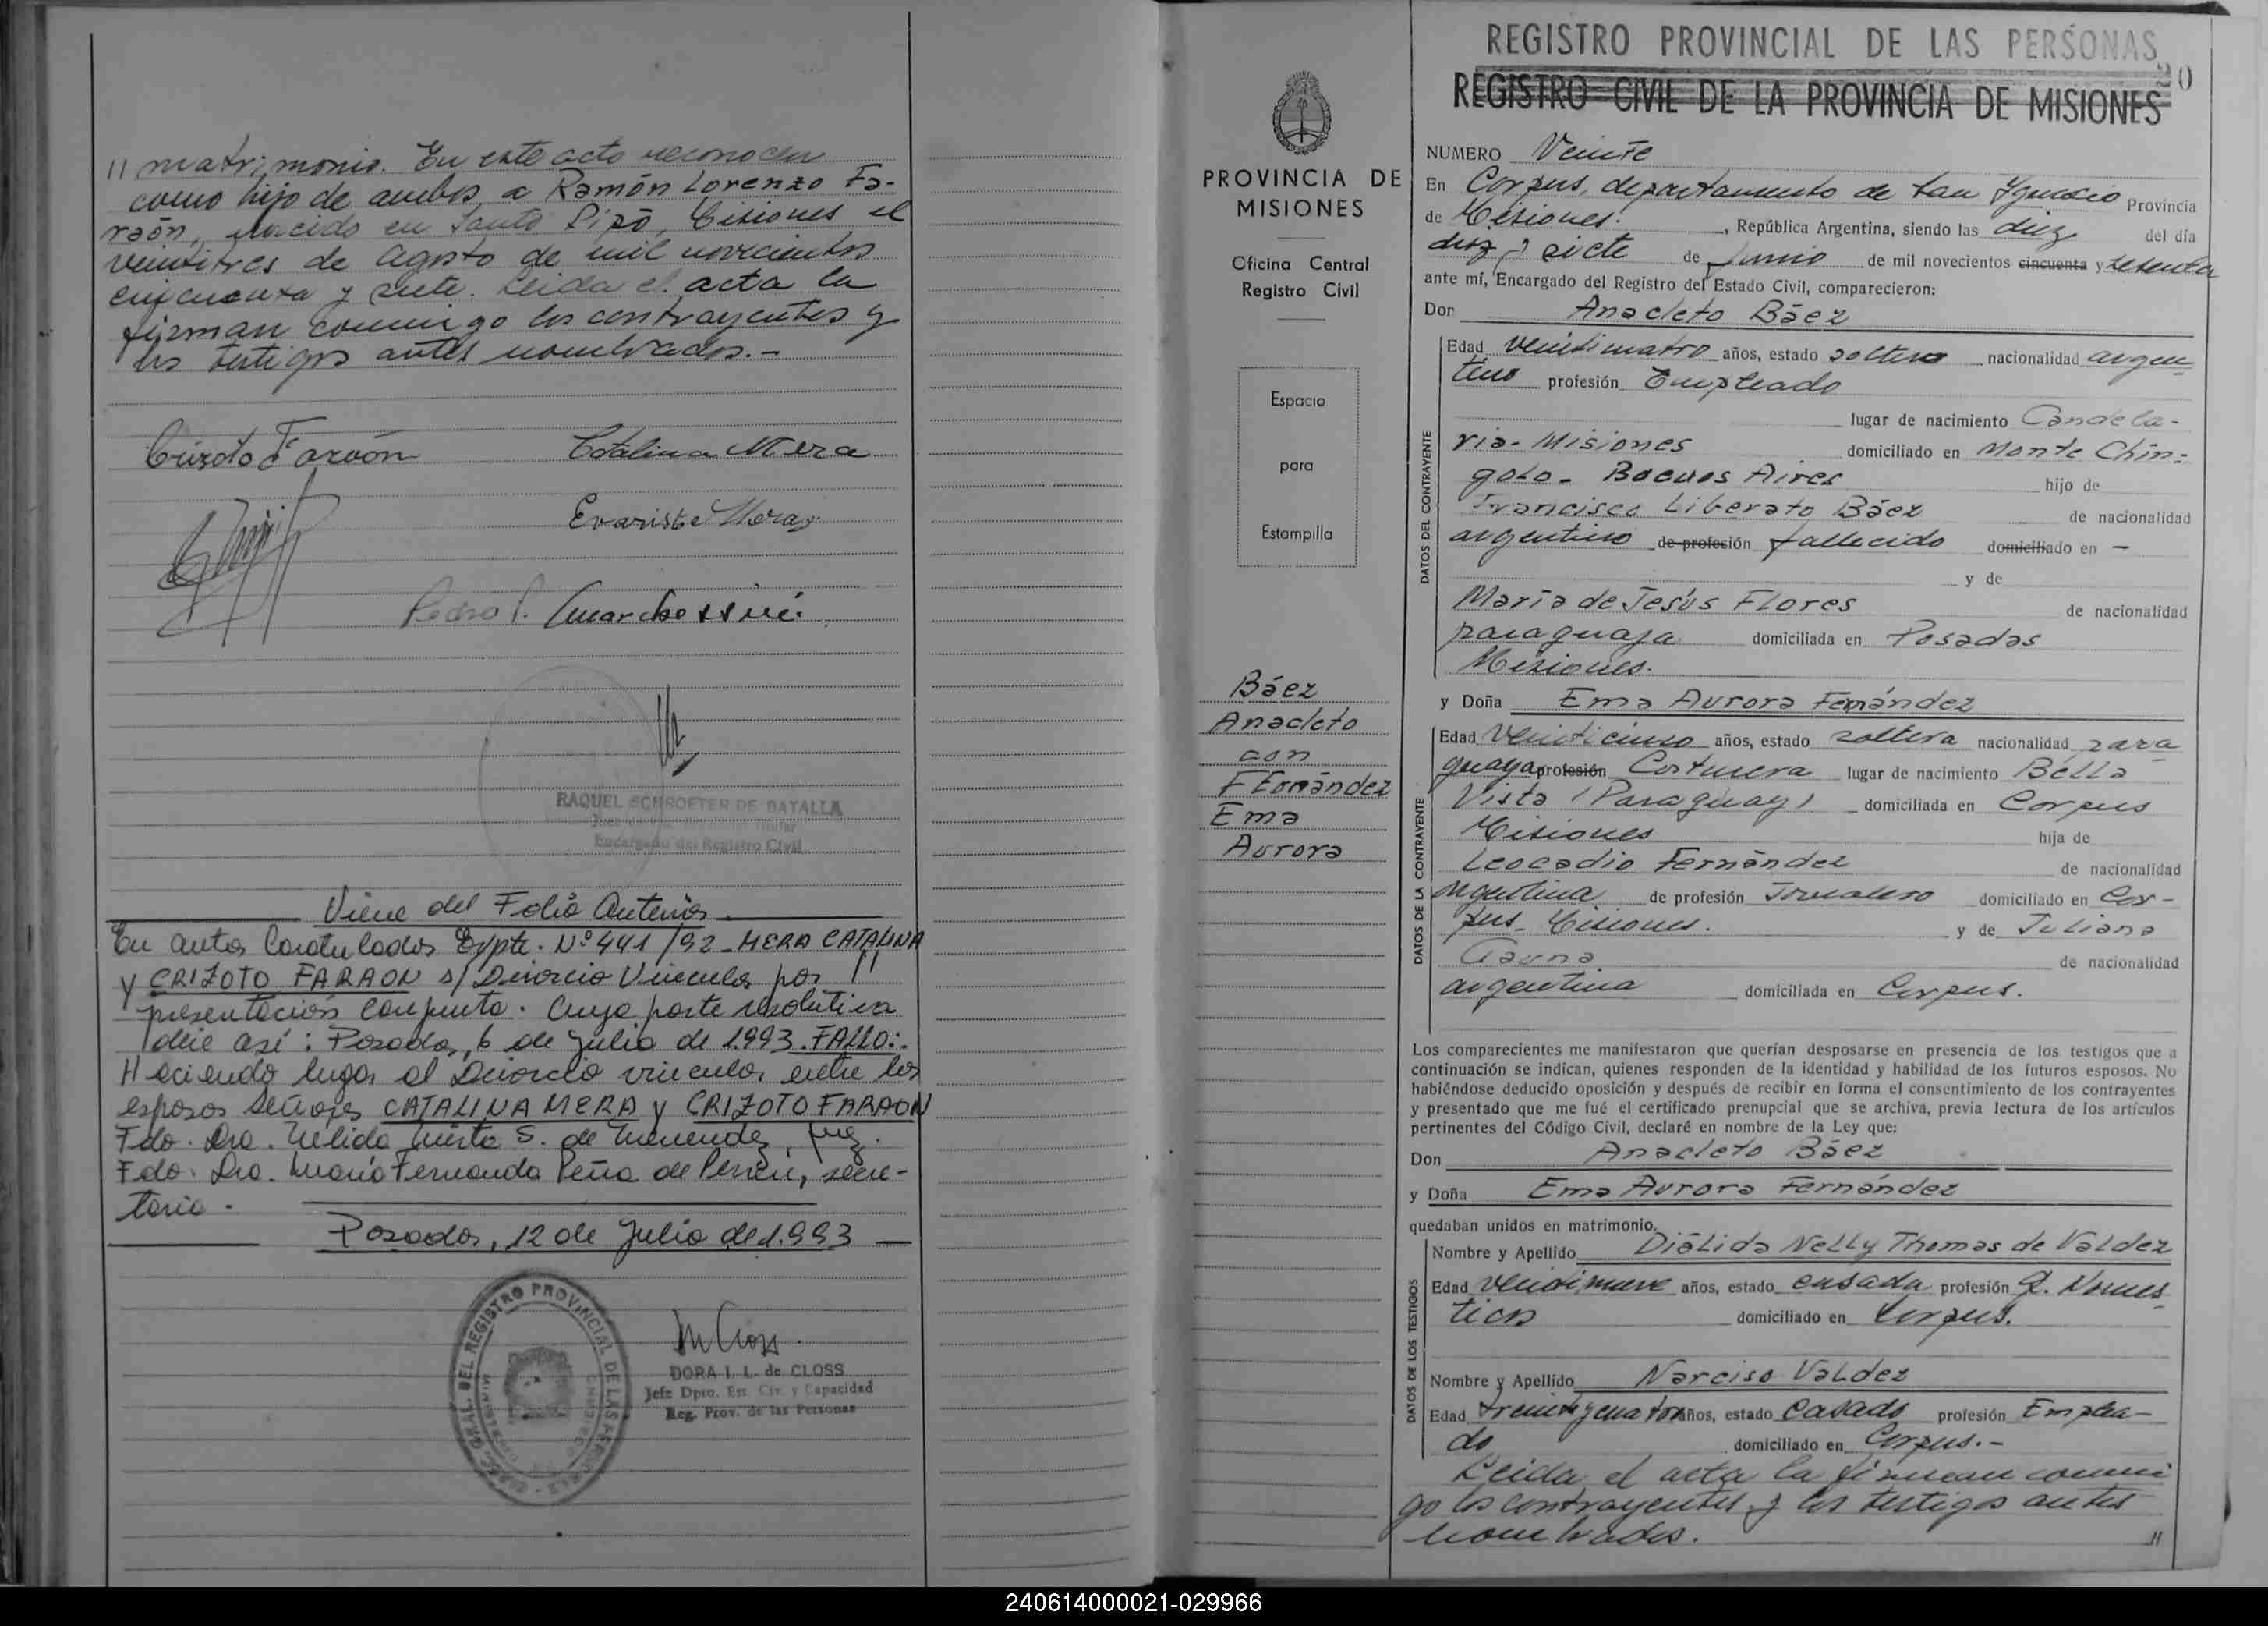 // matrimonio. En este acto reconocen
como hijo de ambos, a Ramón Lorenzo Fa-
raón, nacido en Santo Pipó, Misiones el
veintitres de Agosto de mil novecientos
cincuenta y siete. Leida el acta la
firman conmigo los contrayentes y
los testigos antes nombrados.-
Crizoto Faraón
Catalina Mera
Evaristo
Pedro
RAQUEL SCHROETER DE BATALLA
Encargado del Registro Civil
Viene del Folio Anterior
En autos Caratulados Expte. Nº 441/92 - MERA CATALINA
y CRIZOTO FARAON s/ Divorcio Vincular por
presentación conjunta. Cuya parte resolutiva
dice así: Posadas, 6 de Julio de 1.993. FALLO:.
Haciendo lugar al Divorcio vincular entre los
esposos Señores CATALINA MERA y CRIZOTO FARAON
Fdo. Dra. Nelida Mirta S. de Menendez, Juez.
Fdo. Dra. María Fernanda Peña de, secre-
taria.
Posadas, 12 de Julio de 1.993
REGISTRO PROVINCIAL DE LAS PERSONAS
DORA I. L. de CLOSS
Jefe Dpto. Est. Civ. y Capacidad
Reg. Prov. de las Personas
PROVINCIA DE
MISIONES
Oficina Central
Registro Civil
Espacio
para
Estampilla
Báez
Anacleto
con
Fernández
Ema
Aurora
REGISTRO PROVINCIAL DE LAS PERSONAS
20
REGISTRO CIVIL DE LA PROVINCIA DE MISIONES
NUMERO Veinte
En Corpus, departamento de San Ygnacio Provincia
de Misiones., República Argentina, siendo las diez del día
diez y siete de Junio de mil novecientos cincuenta y setenta
ante mí, Encargado del Registro del Estado Civil, comparecieron:
Don Anacleto Báez
DATOS DEL CONTRAYENTE
Edad veinticuatro años, estado soltero nacionalidad argen
tino profesión Empleado
lugar de nacimiento Candela-
ria- Misiones domiciliado en Monte Chin-
golo- Buenos Aires hijo de
Francisco Liberato Báez de nacionalidad
argentino de profesión fallecido domiciliado en —
y de
María de Jesús Flores de nacionalidad
paraguaya domiciliada en Posadas
Misiones.
y Doña Ema Aurora Fernández
DATOS DE LA CONTRAYENTE
Edad veinticinco años, estado soltera nacionalidad para
guaya profesión Costurera lugar de nacimiento Bella
Vista (Paraguay) domiciliada en Corpus
Misiones hija de
Leocadio Fernández de nacionalidad
argentina de profesión Jornalero domiciliado en Cor-
pus- Misiones. y de Juliana
Gauna de nacionalidad
argentina domiciliada en Corpus.
Los comparecientes me manifestaron que querían desposarse en presencia de los testigos que a
continuación se indican, quienes responden de la identidad y habilidad de los futuros esposos. No
habiéndose deducido oposición y después de recibir en forma el consentimiento de los contrayentes
y presentado que me fué el certificado prenupcial que se archiva, previa lectura de los artículos
pertinentes del Código Civil, declaré en nombre de la Ley que:
Don Anacleto Báez
y Doña Ema Aurora Fernández
quedaban unidos en matrimonio.
DATOS DE LOS TESTIGOS
Nombre y Apellido Diálida Nelly Thomas de Valdez
Edad veintinueve años, estado casada profesión Q. Domes-
ticos domiciliado en Corpus.
Nombre y Apellido Narciso Valdez
Edad treinta y cuatro años, estado casado profesión Emplea-
do domiciliado en Corpus.-
Leida el acta la firman conmi
go los contrayentes y los testigos antes
nombrados. //
240614000021-029966